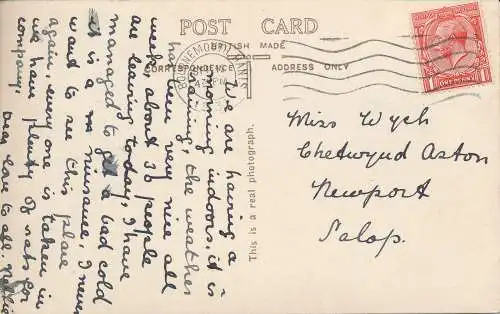 POST CARD
BRITISH MADE
CORRESPONDENCE
ADDRESS ONLY
BOURNEMOUTH
HANTS
This is a real photograph.
We are having a
morning indoors, it is
raining, the weather
has been very nice all
week about 30 people
are leaving today, I have
managed to get a bad cold
it is a nuisance, I never
want to see this place
again, every one is taken in
we have plenty of rats for
company.
Dear love to all. Nellie
Miss Wych
Chetwynd Aston
Newport
Salop.
1 ONE PENNY 1